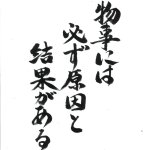 物事には
必ず原因と
結果がある